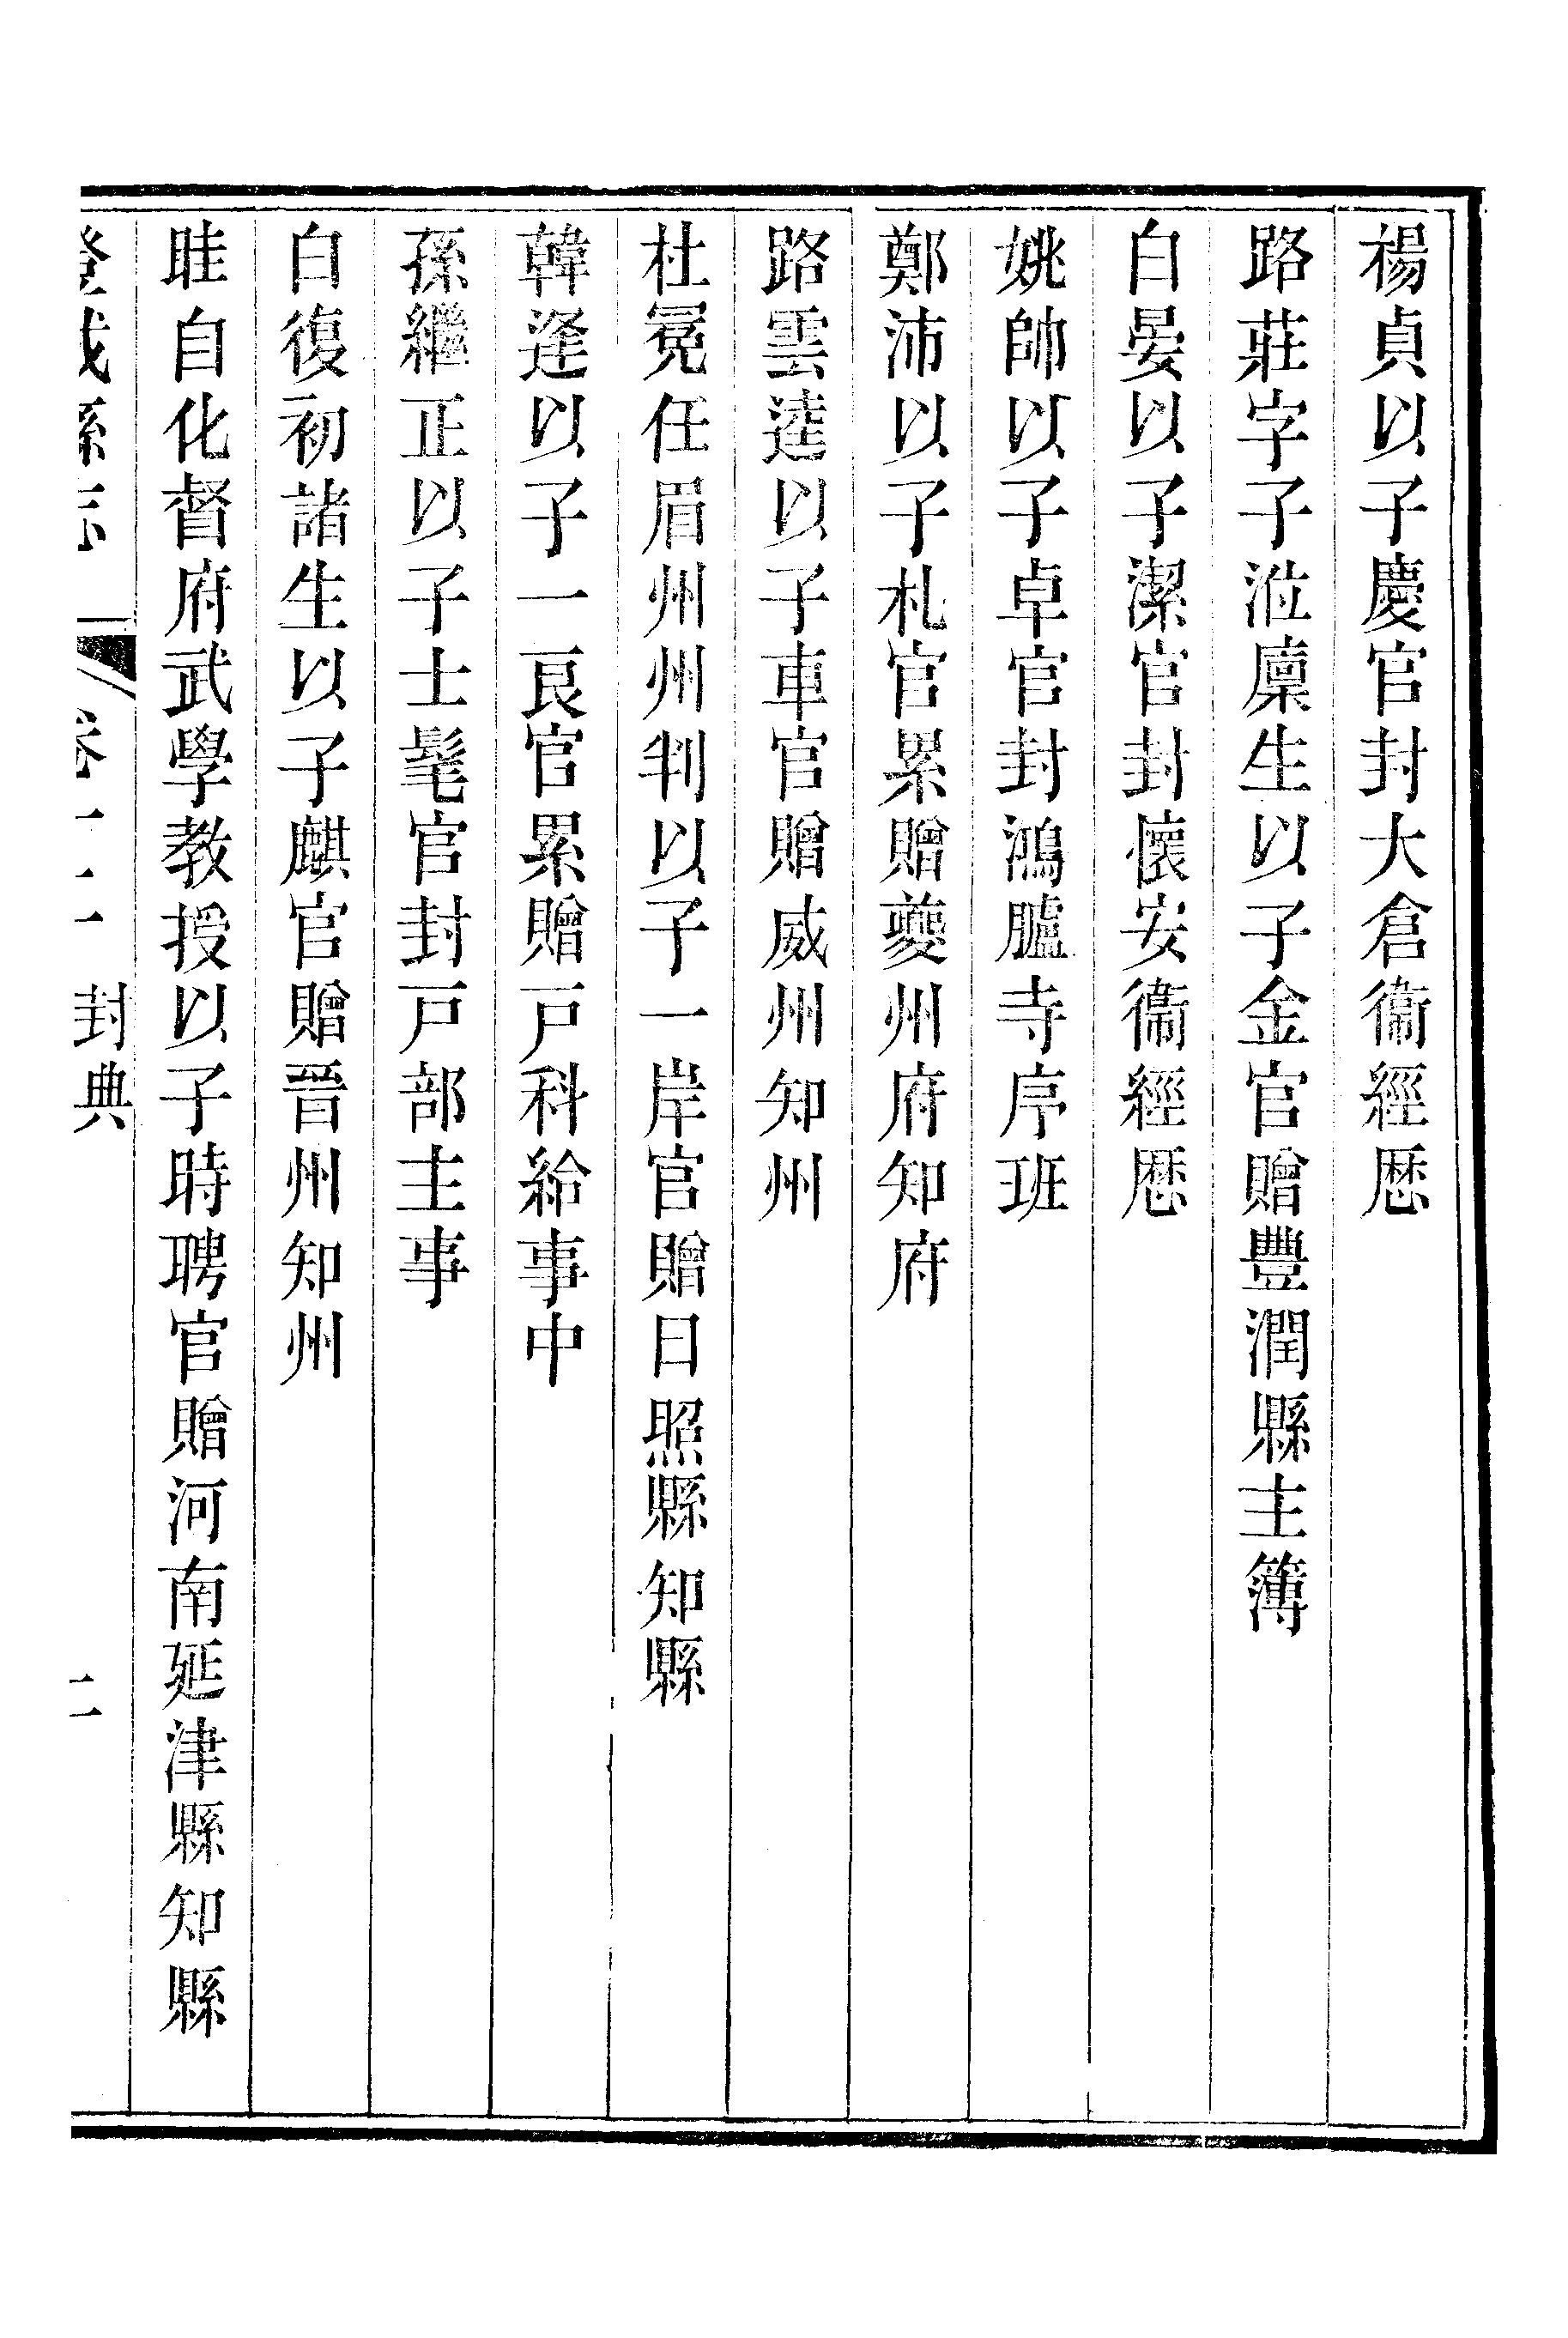 楊貞以子慶官封大倉衞經歷
路莊字子涖廩生以子金官贈豐潤縣主簿
白晏以子潔官封懷安衞經歷
姚帥以子卓官封鴻臚寺序班
鄭沛以子札官累贈夔州府知府
路雲逵以子車官贈威州知州
杜冕任眉州州判以子一岸官贈日照縣知縣
韓逢以子一良官累贈戸科給事中
孫繼正以子士髦官封戸部主事
白復初諸生以子麒官贈晉州知州
眭自化督府武學教授以子時聘官贈河南延津縣知縣
縣志 卷十二 封典 二